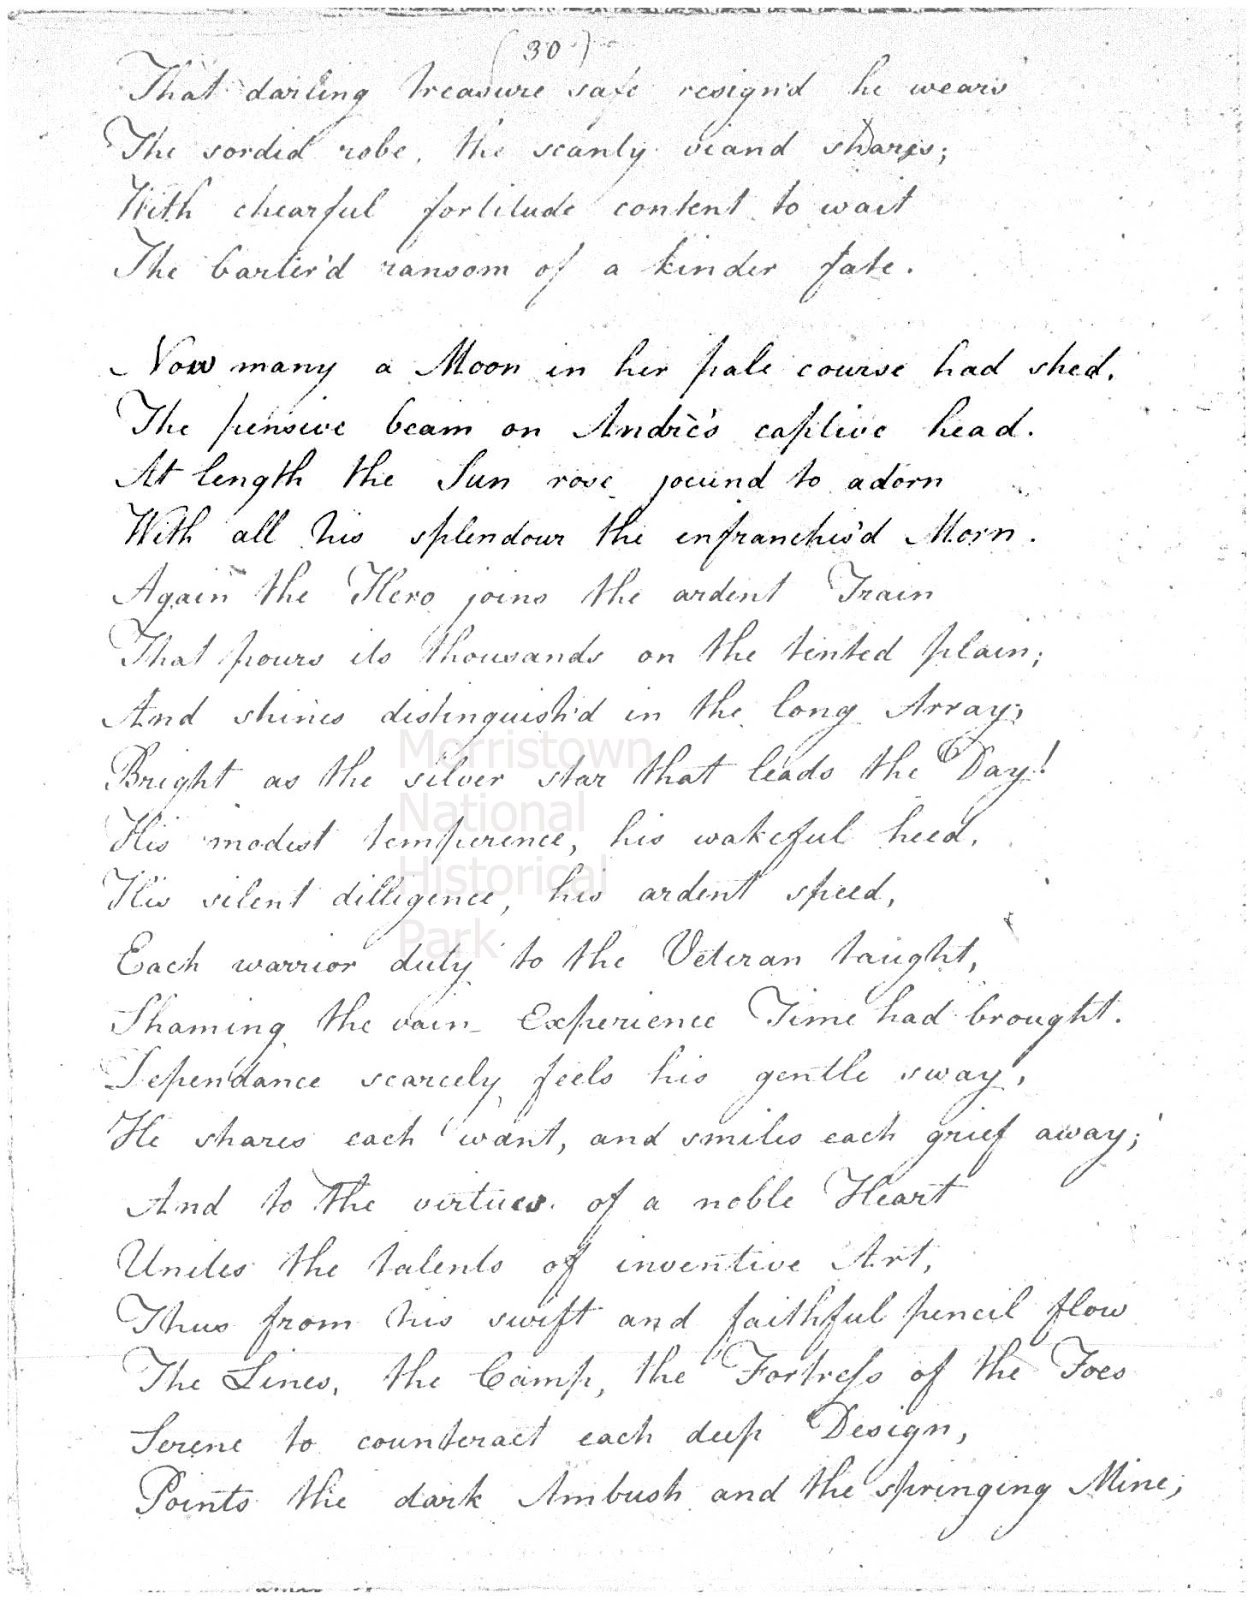 (30)
That darling treasure safe resign'd he wears
The sordid robe, the scanty viand shares;
With chearful fortitude content to wait
The barter'd ransom of a kinder fate.
Now many a Moon in her pale course had shed,
The pensive beam on Andrè's captive head.
At length the Sun rose jocund to adorn
With all his splendour the enfranchis'd Morn.
Again the Hero joins the ardent Train
That pours its thousands on the tented plain;
And shines distinguish'd in the long Array;
Bright as the silver star that leads the Day!
His modest temperence, his wakeful heed,
His silent dilligence, his ardent speed,
Each warrior duty to the Veteran taught,
Shaming the vain Experience Time had brought.
Dependance scarcely feels his gentle sway,
He shares each want, and smiles each grief away;
And to the virtues of a noble Heart
Unites the talents of inventive Art,
Thus from his swift and faithful pencil flow
The Lines, the Camp, the Fortress of the Foes
Serene to counteract each deep Design,
Points the dark Ambush and the springing Mine;
Morristown
National
Historical
Park